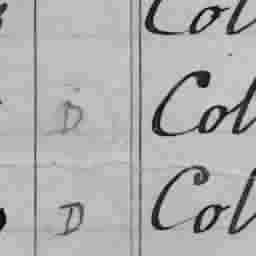 Col
D Col
D Col